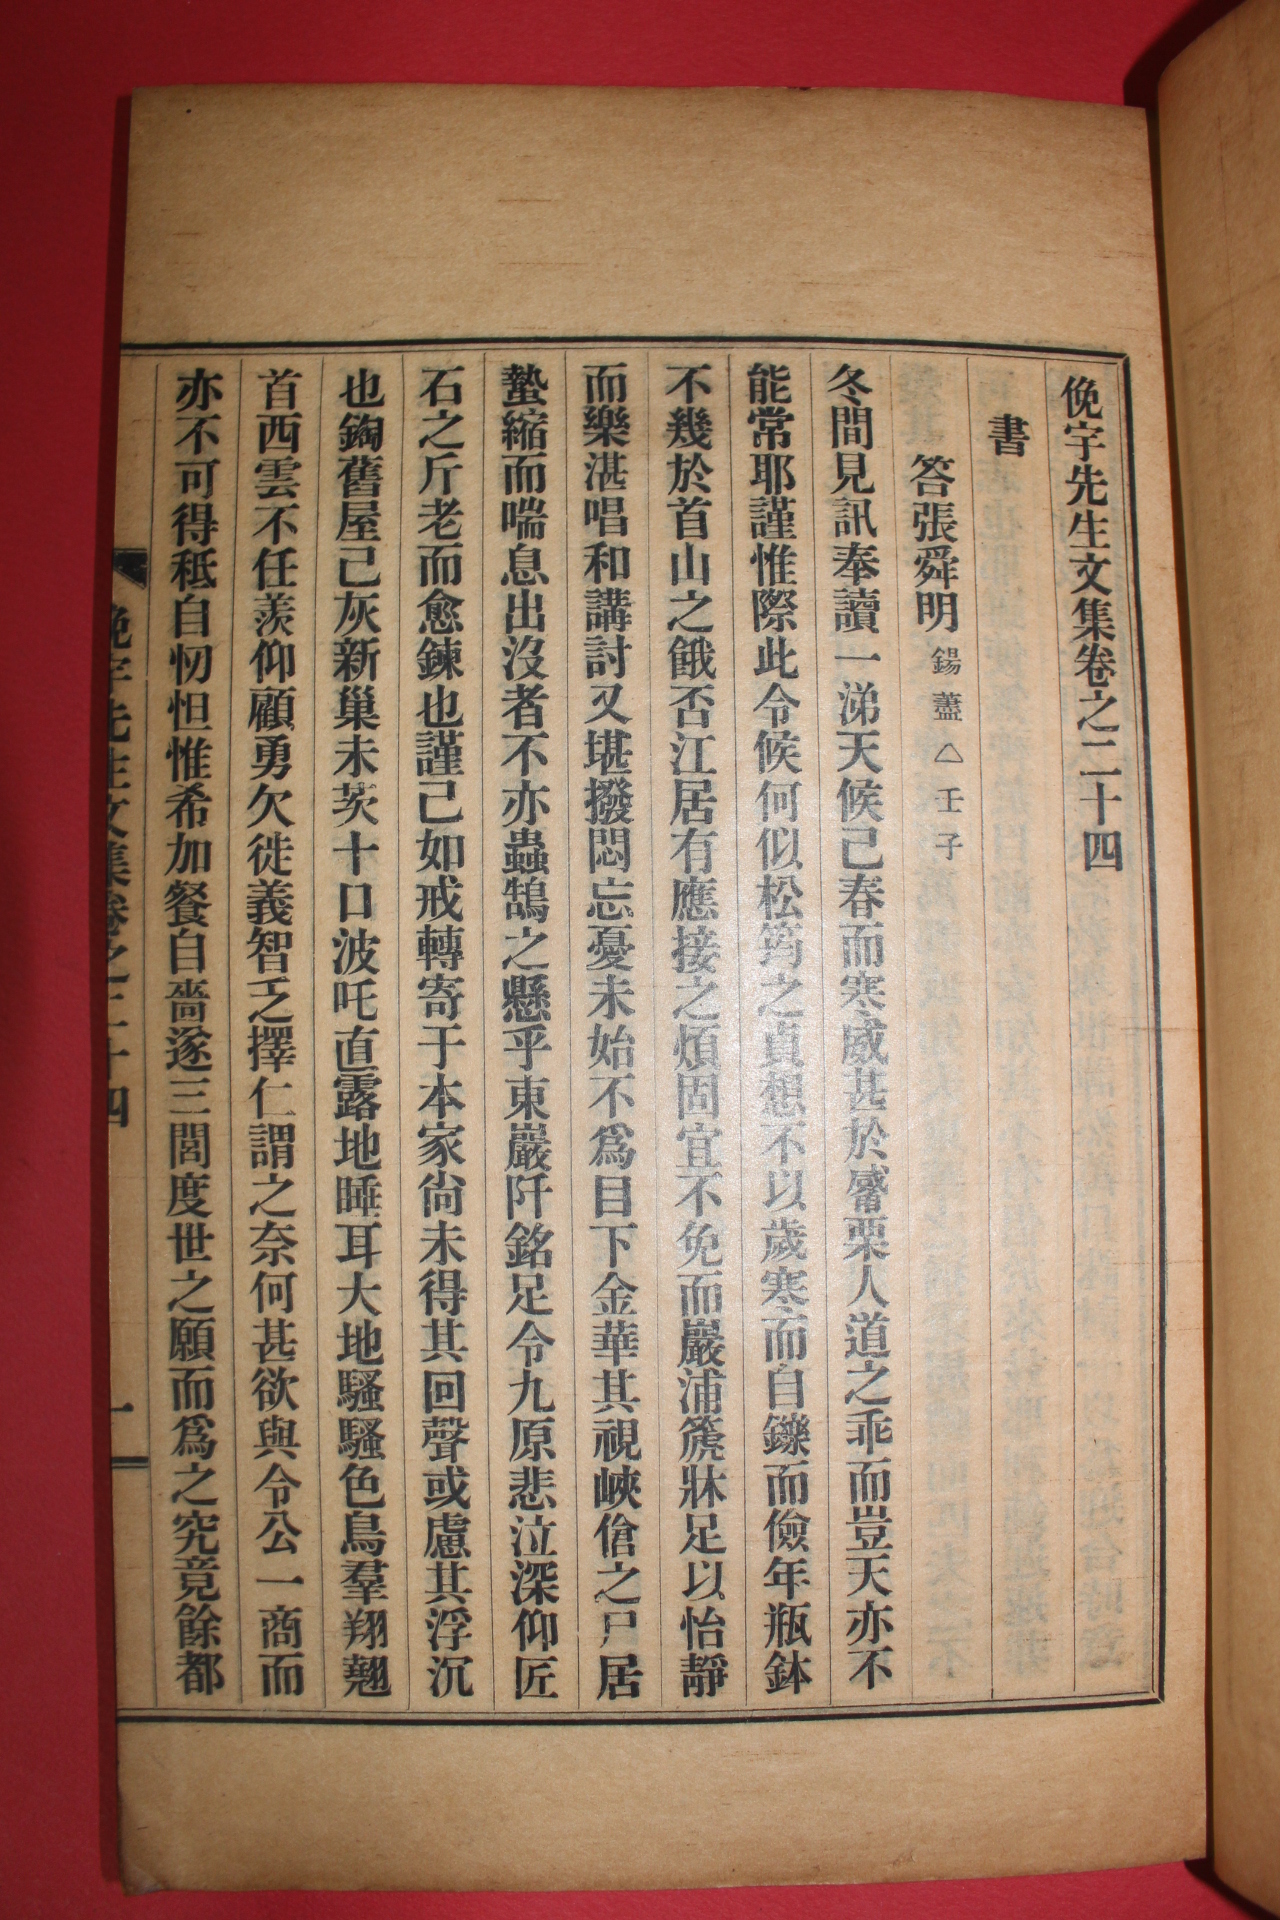 俛宇先生文集卷之二十四
書
答張舜明 錫藎 △ 壬子
冬間見訊奉讀一涕天候已春而寒威甚於觱栗人道之乖而豈天亦不
能常耶謹惟際此令候何似松筠之貞想不以歲寒而自鑠而儉年瓶鉢
不幾於首山之餓否江居有應接之煩固宜不免而巖浦篪牀足以怡靜
而樂湛唱和講討又堪撥悶忘憂未始不爲目下金華其視峽傖之尸居
蟄縮而喘息出沒者不亦蟲鵠之懸乎東巖阡銘足令九原悲泣深仰匠
石之斤老而愈鍊也謹已如戒轉寄于本家尙未得其回聲或慮其浮沉
也鋾舊屋已灰新巢未茨十口波吒直露地睡耳大地騷騷色鳥羣翔翹
首西雲不任羨仰顧勇欠徙義智乏擇仁謂之奈何甚欲與令公一商而
亦不可得秪自忉怛惟希加餐自嗇遂三閭度世之願而爲之究竟餘都
俛宇先生文集卷之二十四 一